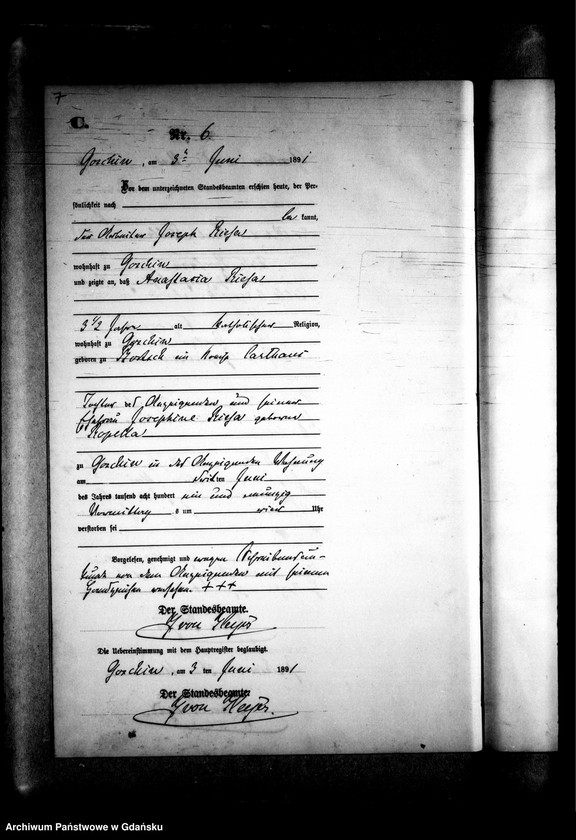 7
C.
Nr. 6.
Goschin, am 3ᵗ Juni 1891
Vor dem unterzeichneten Standesbeamten erschien heute, der Per-
sönlichkeit nach
be kannt,
der Arbeiter Joseph
wohnhaft zu Goschin
und zeigte an, daß Anastasia
3 1/2 Jahre alt katholischer Religion,
wohnhaft zu Goschin
geboren zu im Kreise Carthaus
Tochter des Anzeigenden und seiner
Ehefrau Josephine geborene
Kopetta
zu Goschin in des Anzeigenden Wohnung
am dritten Juni
des Jahres tausend acht hundert ein und neunzig
Vormittag s um vier Uhr
verstorben sei
Vorgelesen, genehmigt und wegen Schreibensun-
kunde von dem Anzeigenden mit seinem
Handzeichen versehen. +++
Der Standesbeamte.
von
Die Uebereinstimmung mit dem Hauptregister beglaubigt.
Goschin, am 3 ten Juni 1891
Der Standesbeamte.
von
Archiwum Państwowe w Gdańsku